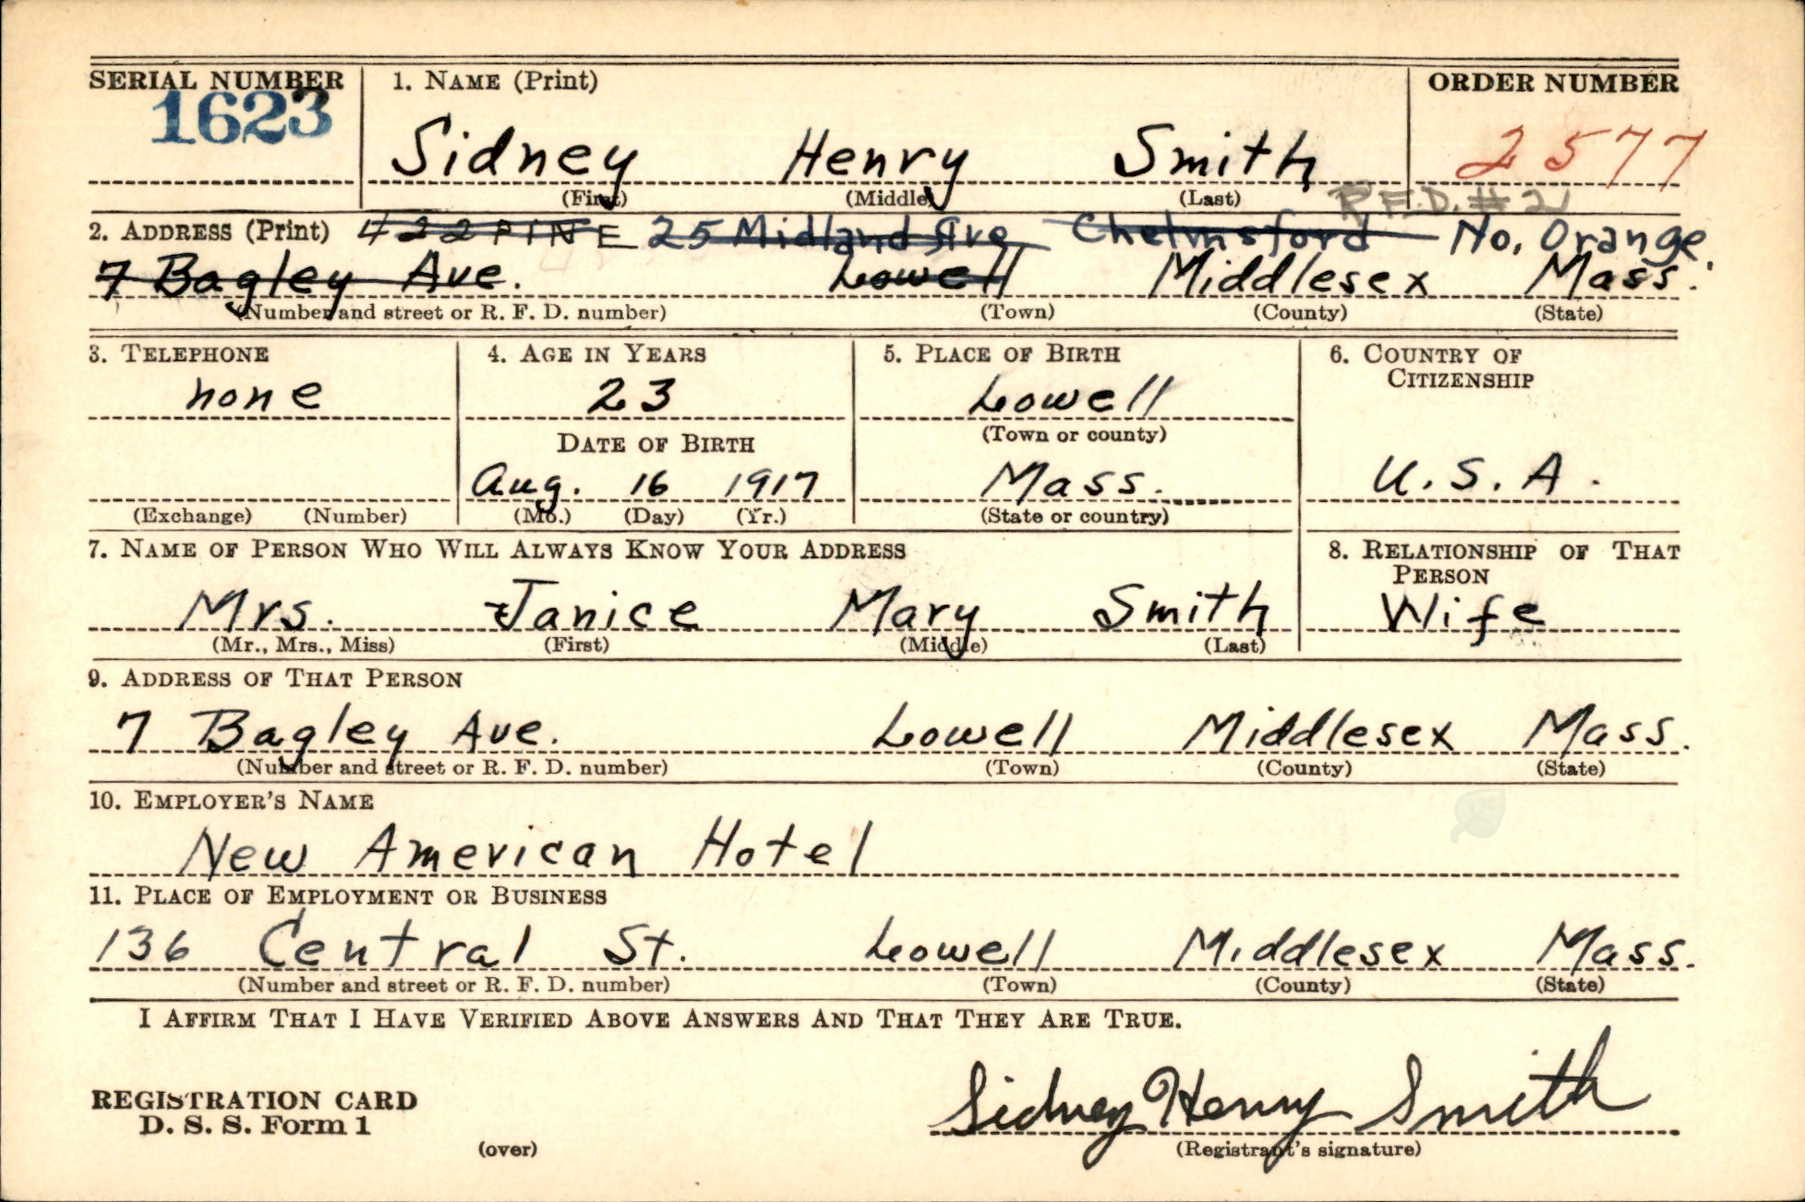 SERIAL NUMBER 1. NAME (Print) ORDER NUMBER
1623
Sidney Henry Smith 2577
(First) (Middle) (Last)
R.F.D. #2
2. ADDRESS (Print) 422 PINE 25 Midland Ave Chelmsford No. Orange
7 Bagley Ave. Lowell Middlesex Mass.
(Number and street or R. F. D. number) (Town) (County) (State)
3. TELEPHONE 4. AGE IN YEARS 5. PLACE OF BIRTH 6. COUNTRY OF
CITIZENSHIP
none 23 Lowell
(Town or county)
DATE OF BIRTH
Aug. 16 1917 Mass. U.S.A.
(Exchange) (Number) (Mo.) (Day) (Yr.) (State or country)
7. NAME OF PERSON WHO WILL ALWAYS KNOW YOUR ADDRESS 8. RELATIONSHIP OF THAT
PERSON
Mrs. Janice Mary Smith Wife
(Mr., Mrs., Miss) (First) (Middle) (Last)
9. ADDRESS OF THAT PERSON
7 Bagley Ave. Lowell Middlesex Mass.
(Number and street or R. F. D. number) (Town) (County) (State)
10. EMPLOYER'S NAME
New American Hotel
11. PLACE OF EMPLOYMENT OR BUSINESS
136 Central St. Lowell Middlesex Mass.
(Number and street or R. F. D. number) (Town) (County) (State)
I AFFIRM THAT I HAVE VERIFIED ABOVE ANSWERS AND THAT THEY ARE TRUE.
REGISTRATION CARD
D. S. S. Form 1
Sidney Henry Smith
(over) (Registrant's signature)